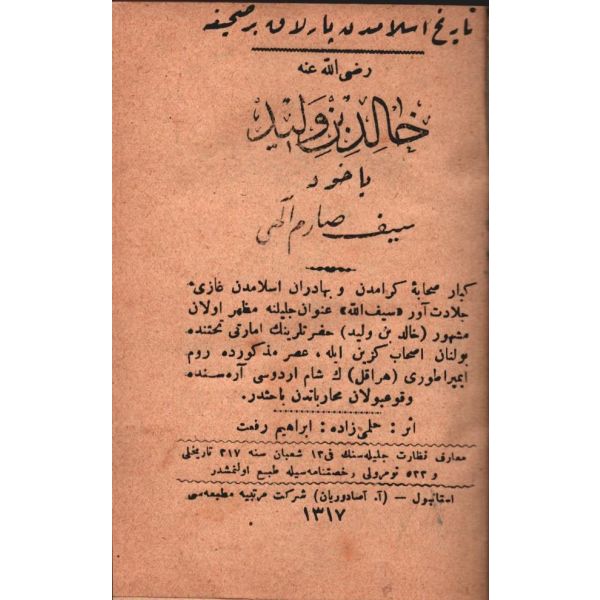 تاریخ اسلامدن پارلاق بر صحیفه
رضی الله عنه
خالد بن ولید
یاخود
سیف صارم الهی
کبار صحابهٔ کرامدن و بهادران اسلامدن غازیٔ
جلادت آور «سیف الله» عنوان جلیلنه مظهر اولان
مشهور (خالد بن ولید) حضرتلرینك امارتی تحتنده
بولنان اصحاب کزین ایله، عصر مذکورده روم
ایمپراطوری (هراقل) ك شام اردوسی آره سنده
وقوعبولان محارباتدن باحثدر.
اثر: حلمی زاده: ابراهیم رفعت
معارف نظارت جلیله سنك فی ۱۲ شعبان سنه ۳۱۷ تاریخلی
و ۵۲۲ نومرولی رخصتنامه سیله طبع اولنمشدر
استانبول — (آ. آصادوریان) شرکت مرتبیه مطبعه سی
۱۳۱۷